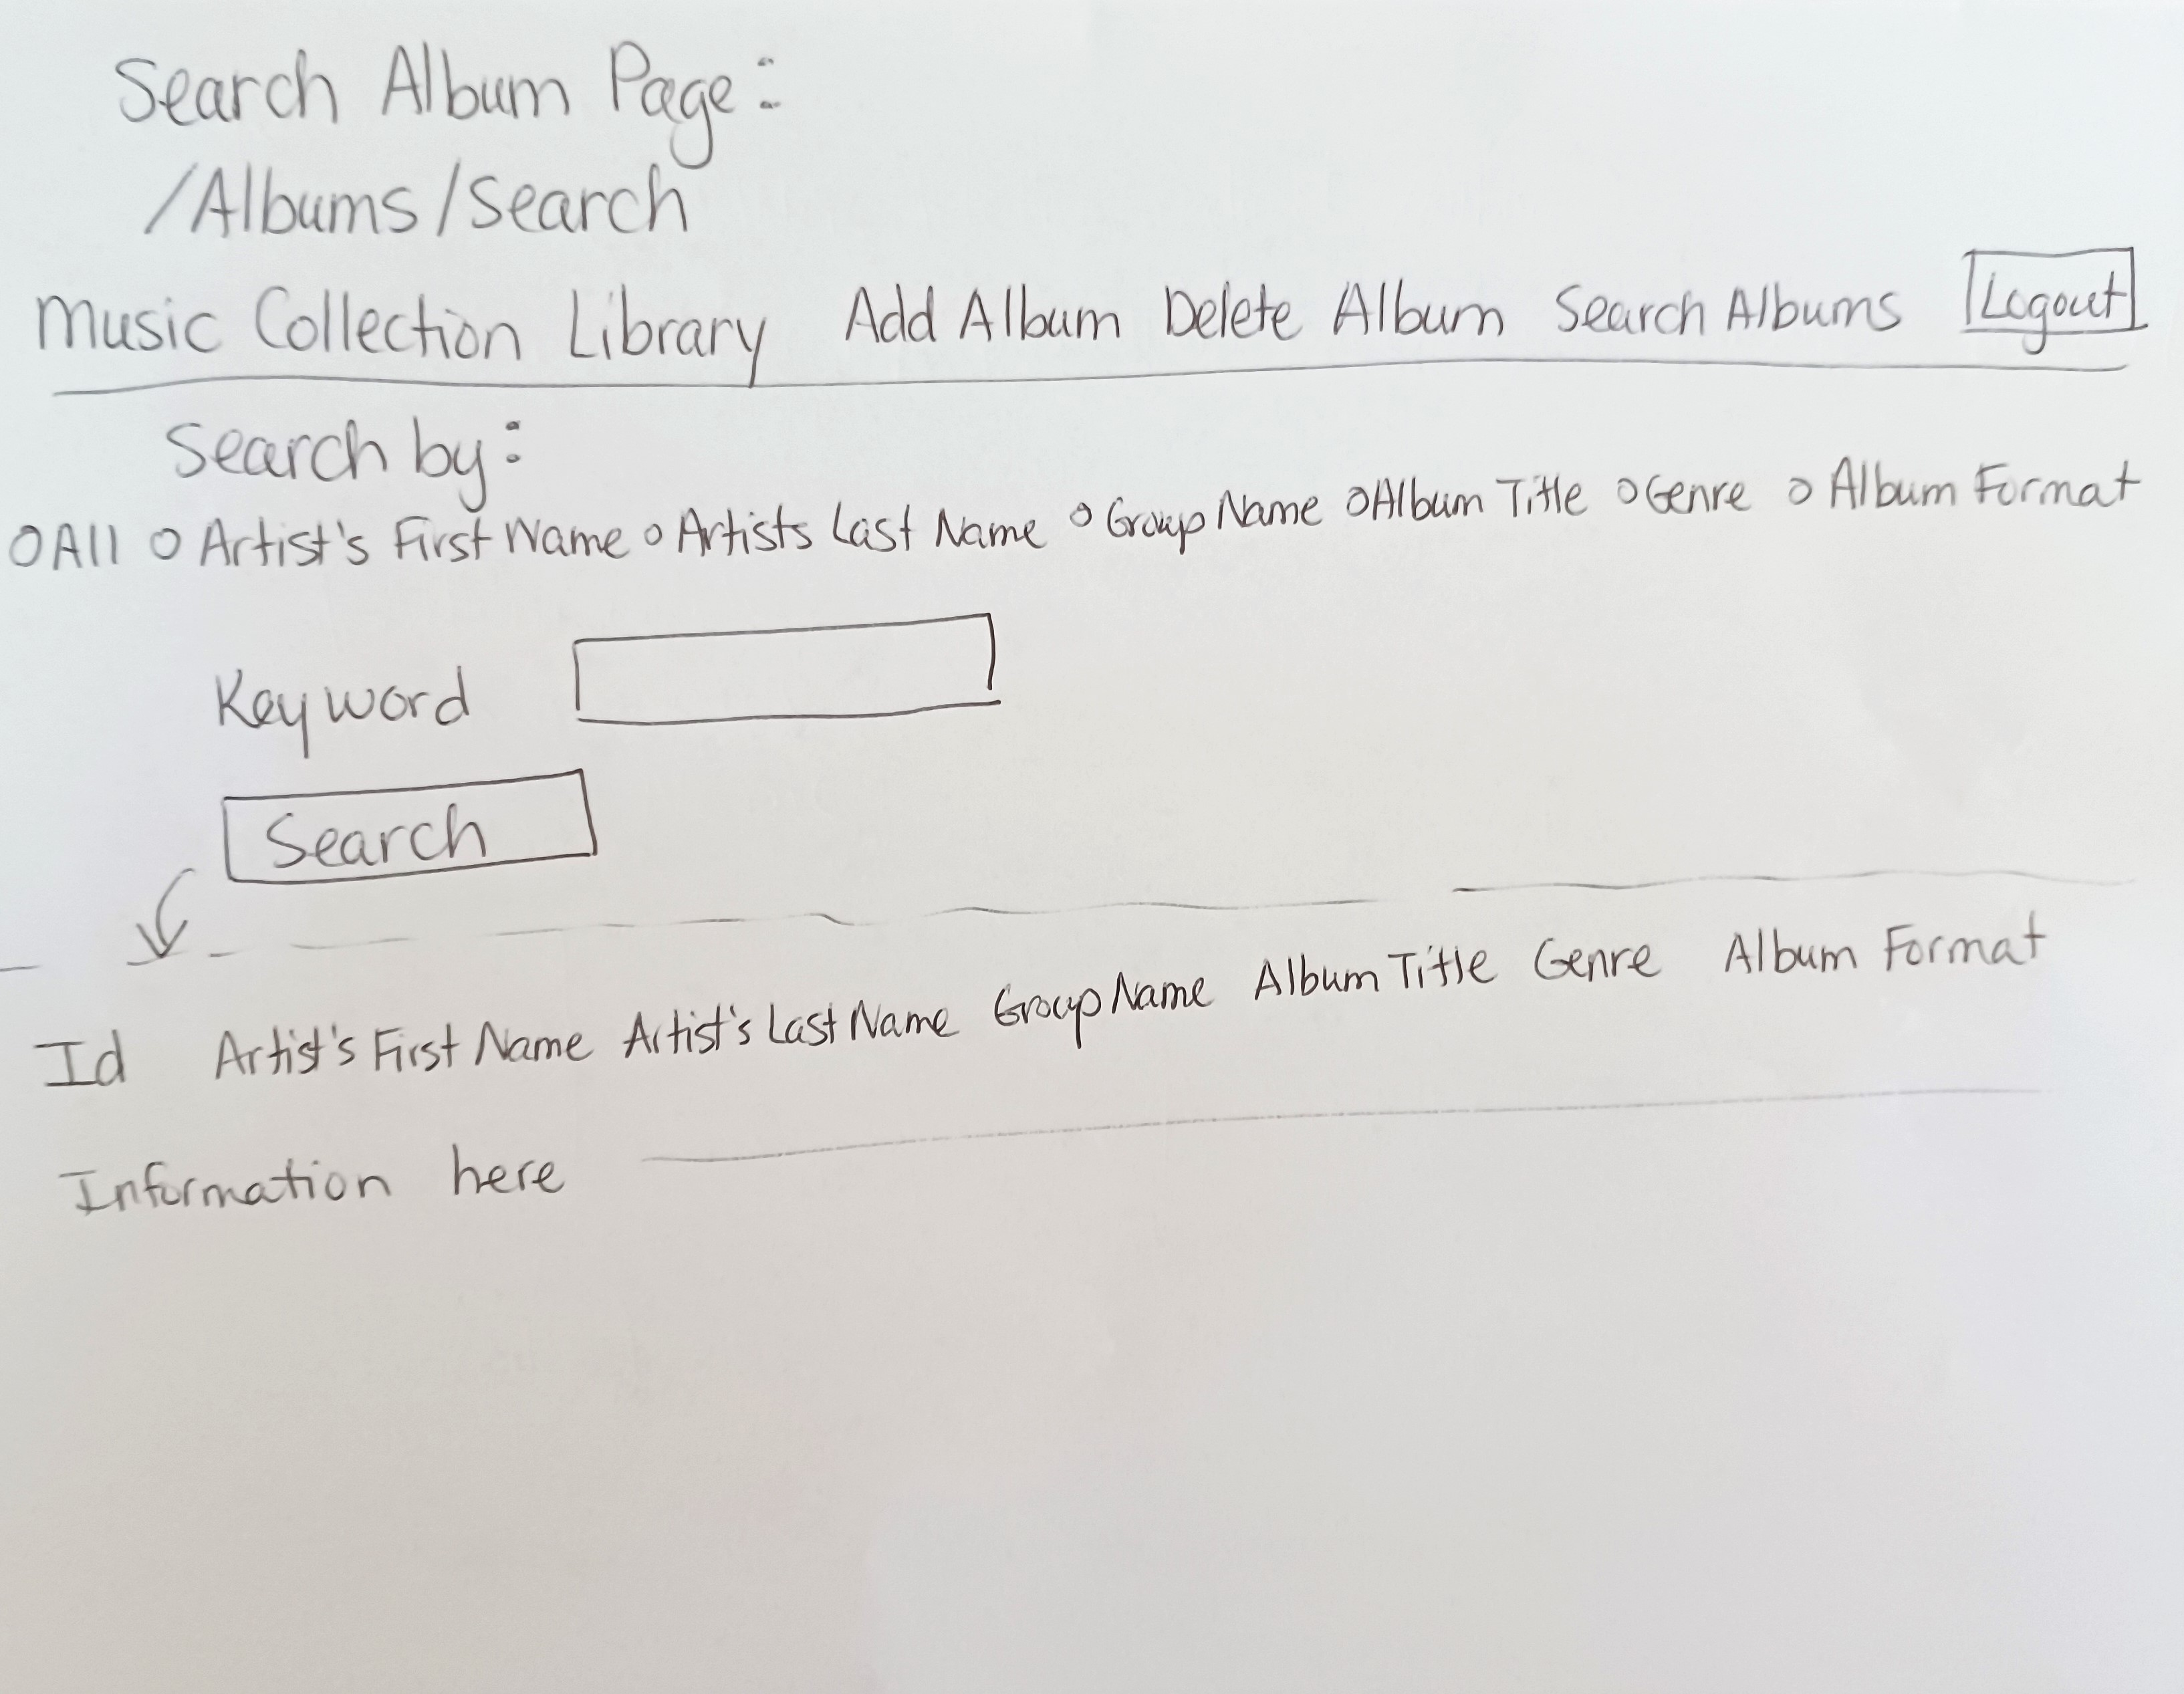 Search Album Page:
/Albums/search
Music Collection Library Add Album Delete Album Search Albums Logout
Search by:
All Artist's First Name Artists Last Name Group Name Album Title Genre Album Format
Keyword
Search
Id Artist's First Name Artist's Last Name Group Name Album Title Genre Album Format
Information here